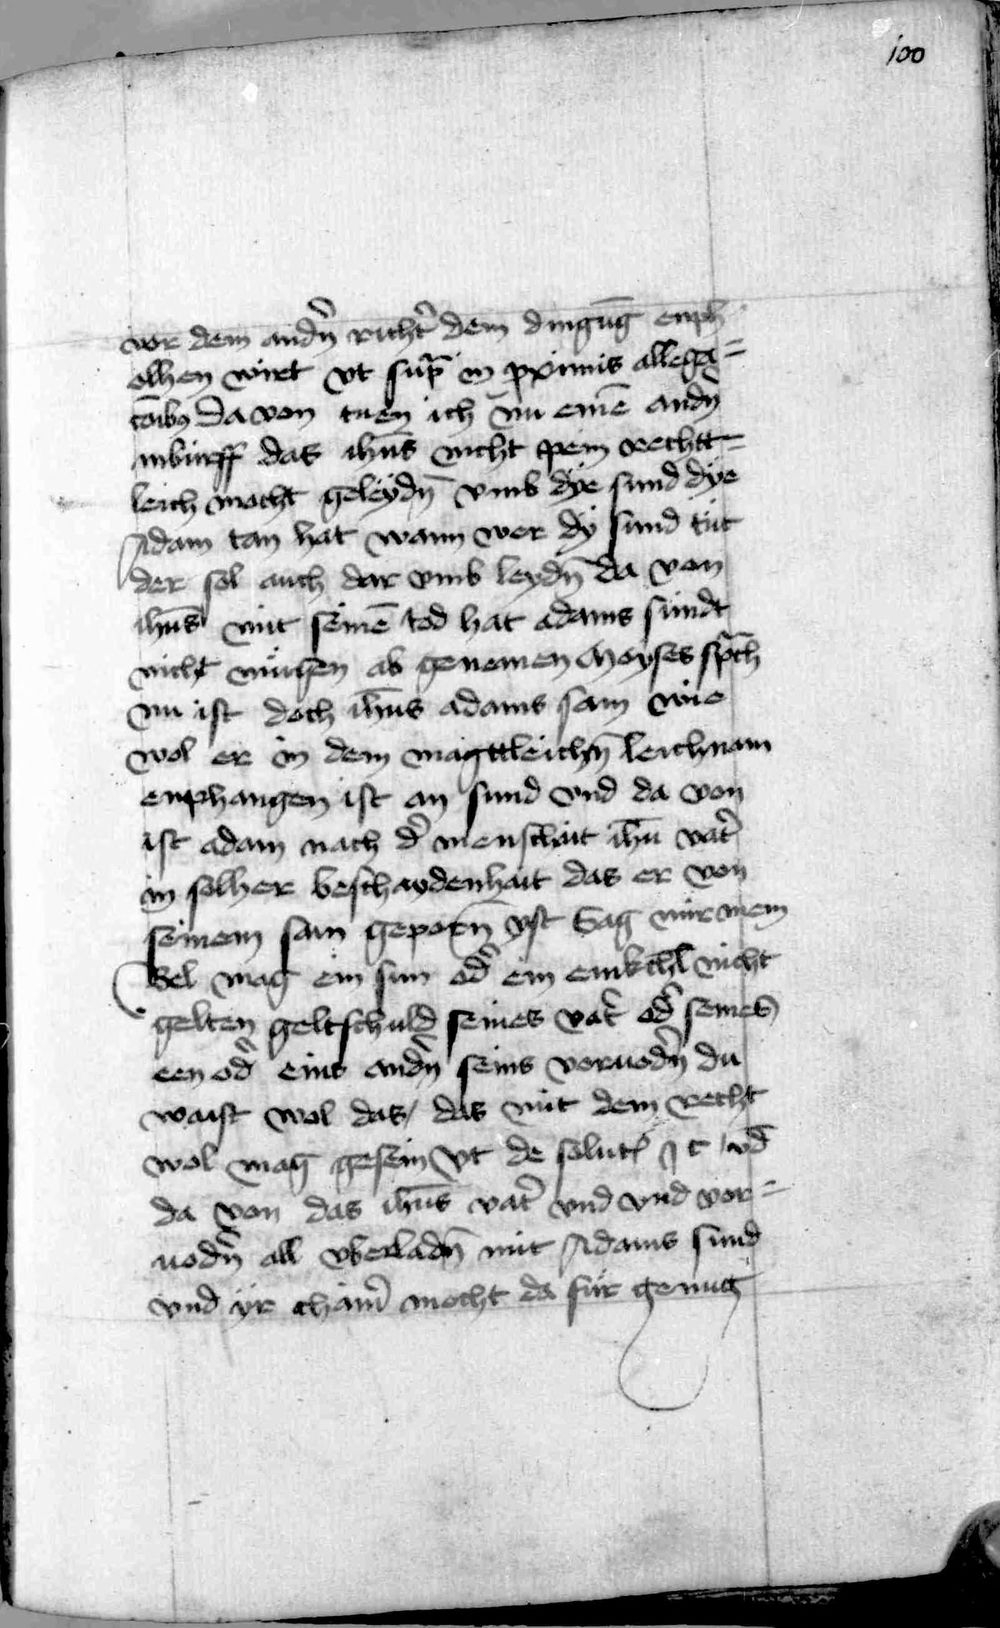 100
vor dem andn̄ richt̄ dem dingūg enph
olhen wirt vt sup̄ in p̄ximis allega=
cōibꝫ Da von tuen ich nu einē andn̄
inbürff das ih̄us nicht pein rechtt=
leich mocht geleydn̄ vmb dye sund dye
Adam tan hat wann wer dy sund tüt
der sol auch dar vmb leydn̄ da von
ih̄us mit seinē tod hat adams sündt
nicht mügen ab genemen Moyses sp̄ch
nu ist doch ih̄us adams sam wie
wol er in dem magttleichn̄ leichnam
enphangen ist an sund vnd da von
ist adam nach d̄ menschait ih̄u vat̄
in solher beschaydenhait das er von
seinem sam geporn̄ yst Sag mir mein
Bel mag ein sun od̄ ein enikchl nicht
gelten geltschuld seines vat̄ od̄ seines
een od̄ eins andn̄ seins voruodn̄ du
waist wol das / das mit dem recht
wol mag gesein vt de solut̄ vd̄
da von das ih̄us vat̄ vnd vnd vor=
uodn̄ all vberladn̄ mit Adams sund
vnd yr mocht da für genug